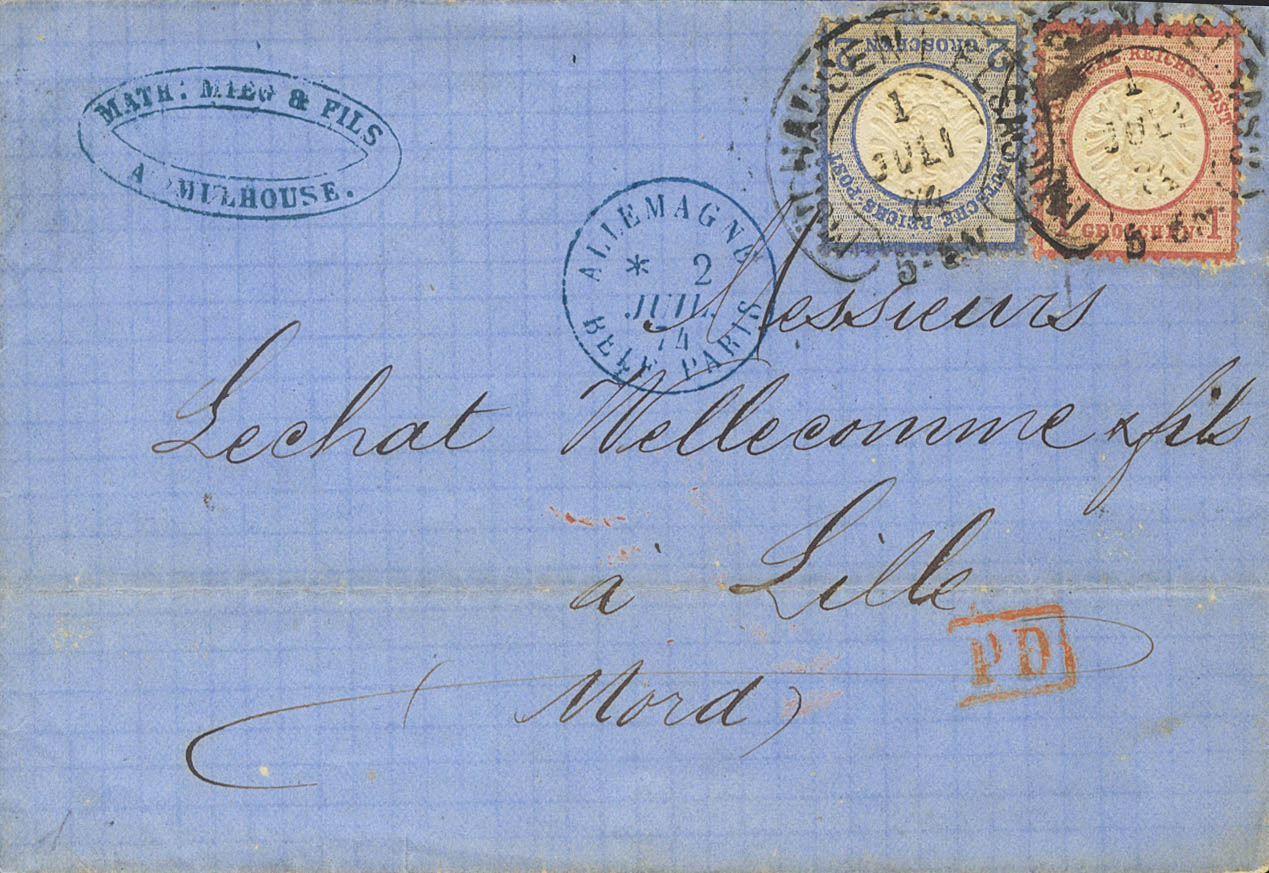 MATH: MIEG & FILS
A MULHOUSE.
2 GROSCHEN 2
DEUTSCHE REICHS-POST
MÜLHAUSEN I. ELSASS
1
JULI
74
5-6N
DEUTSCHE REICHS-POST
1 GROSCHEN 1
1
JULI
5-6N
ALLEMAGNE
* 2
JUIL.
74
BELF. PARIS
Messieurs
Lechat Wellecomme & fils
à Lille
(Nord)
PD